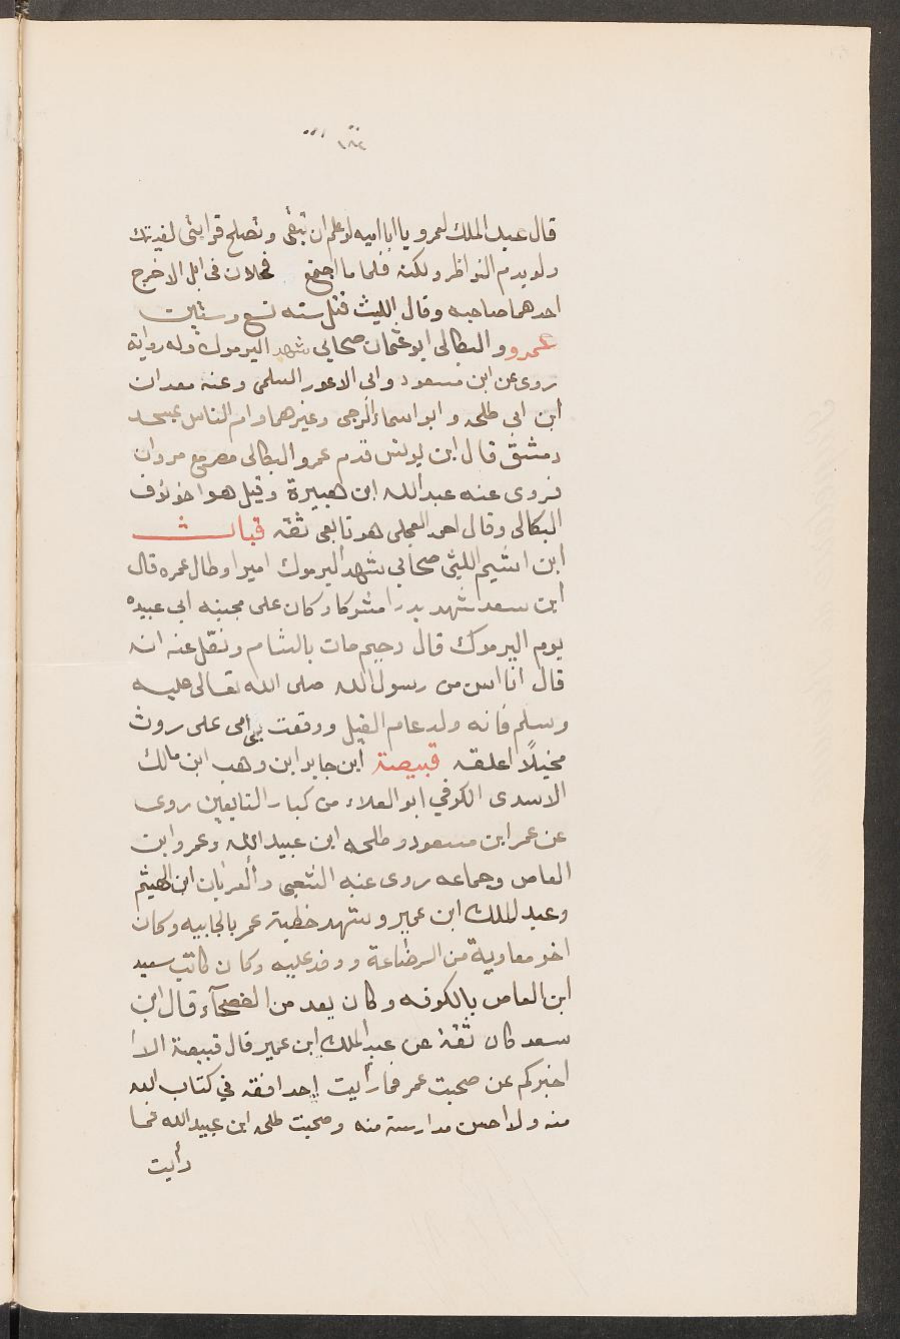 ١٨٤
قال عبد الملك لعمرو يا ابا اميه لو علم ان تبقى وتصلح قرابتى لفديتك
ولو بدم النواظر ولكنه قلما ما اجتمع فحلان فى ابل الا خرج
احدهما صاحبه وقال الليث قتل سنه تسع وستين
عمرو والبكالى ابو عثمان صحابي شهد اليرموك وله رواية
روى عن ابن مسعود وابى الاعور السلمى وعنه معدان
ابن ابي طلحه وابو اسماء الرحبى وغيرهما وام الناس بمسجد
دمشق قال ابن يونس قدم عمرو البكالى مصر مع مروان
فروى عنه عبد الله ابن هبيرة وقيل هو اخو نوف
البكالى وقال احمد العجلى هو تابعى ثقه قباث
ابن اشيم الليثى صحابي شهد اليرموك اميرا وطال عمره قال
ابن سعد شهد بدرا مشركا وكان على مجنبه ابي عبيده
يوم اليرموك قال دحيم مات بالشام ونقل عنه انه
قال انا اسن من رسول الله صلى الله تعالى عليه
وسلم فانه ولد عام الفيل ووقفت بى امى على روث
محيلاً اعلقه قبيصة ابن جابر ابن وهب ابن مالك
الاسدى الكوفي ابو العلاء من كبار التابعين روى
عن عمر ابن مسعود وطلحه ابن عبيد الله وعمرو ابن
العاص وجماعه روى عنه الشعبى والعريان ابن الهيثم
وعبد الملك ابن عمير وشهد خطبة عمر بالجابيه وكان
اخو معاوية من الرضاعة ووفد عليه وكان كاتب سعيد
ابن العاص بالكوفه وكان يعد من الفصحآء قال ابن
سعد كان ثقة عن عبد الملك ابن عمير قال قبيصة الا
اخبركم عن صحبت عمر فما رأيت احد افقه في كتاب الله
منه ولا احسن مدارسة منه وصحبت طلحه ابن عبيد الله فما
رأيت